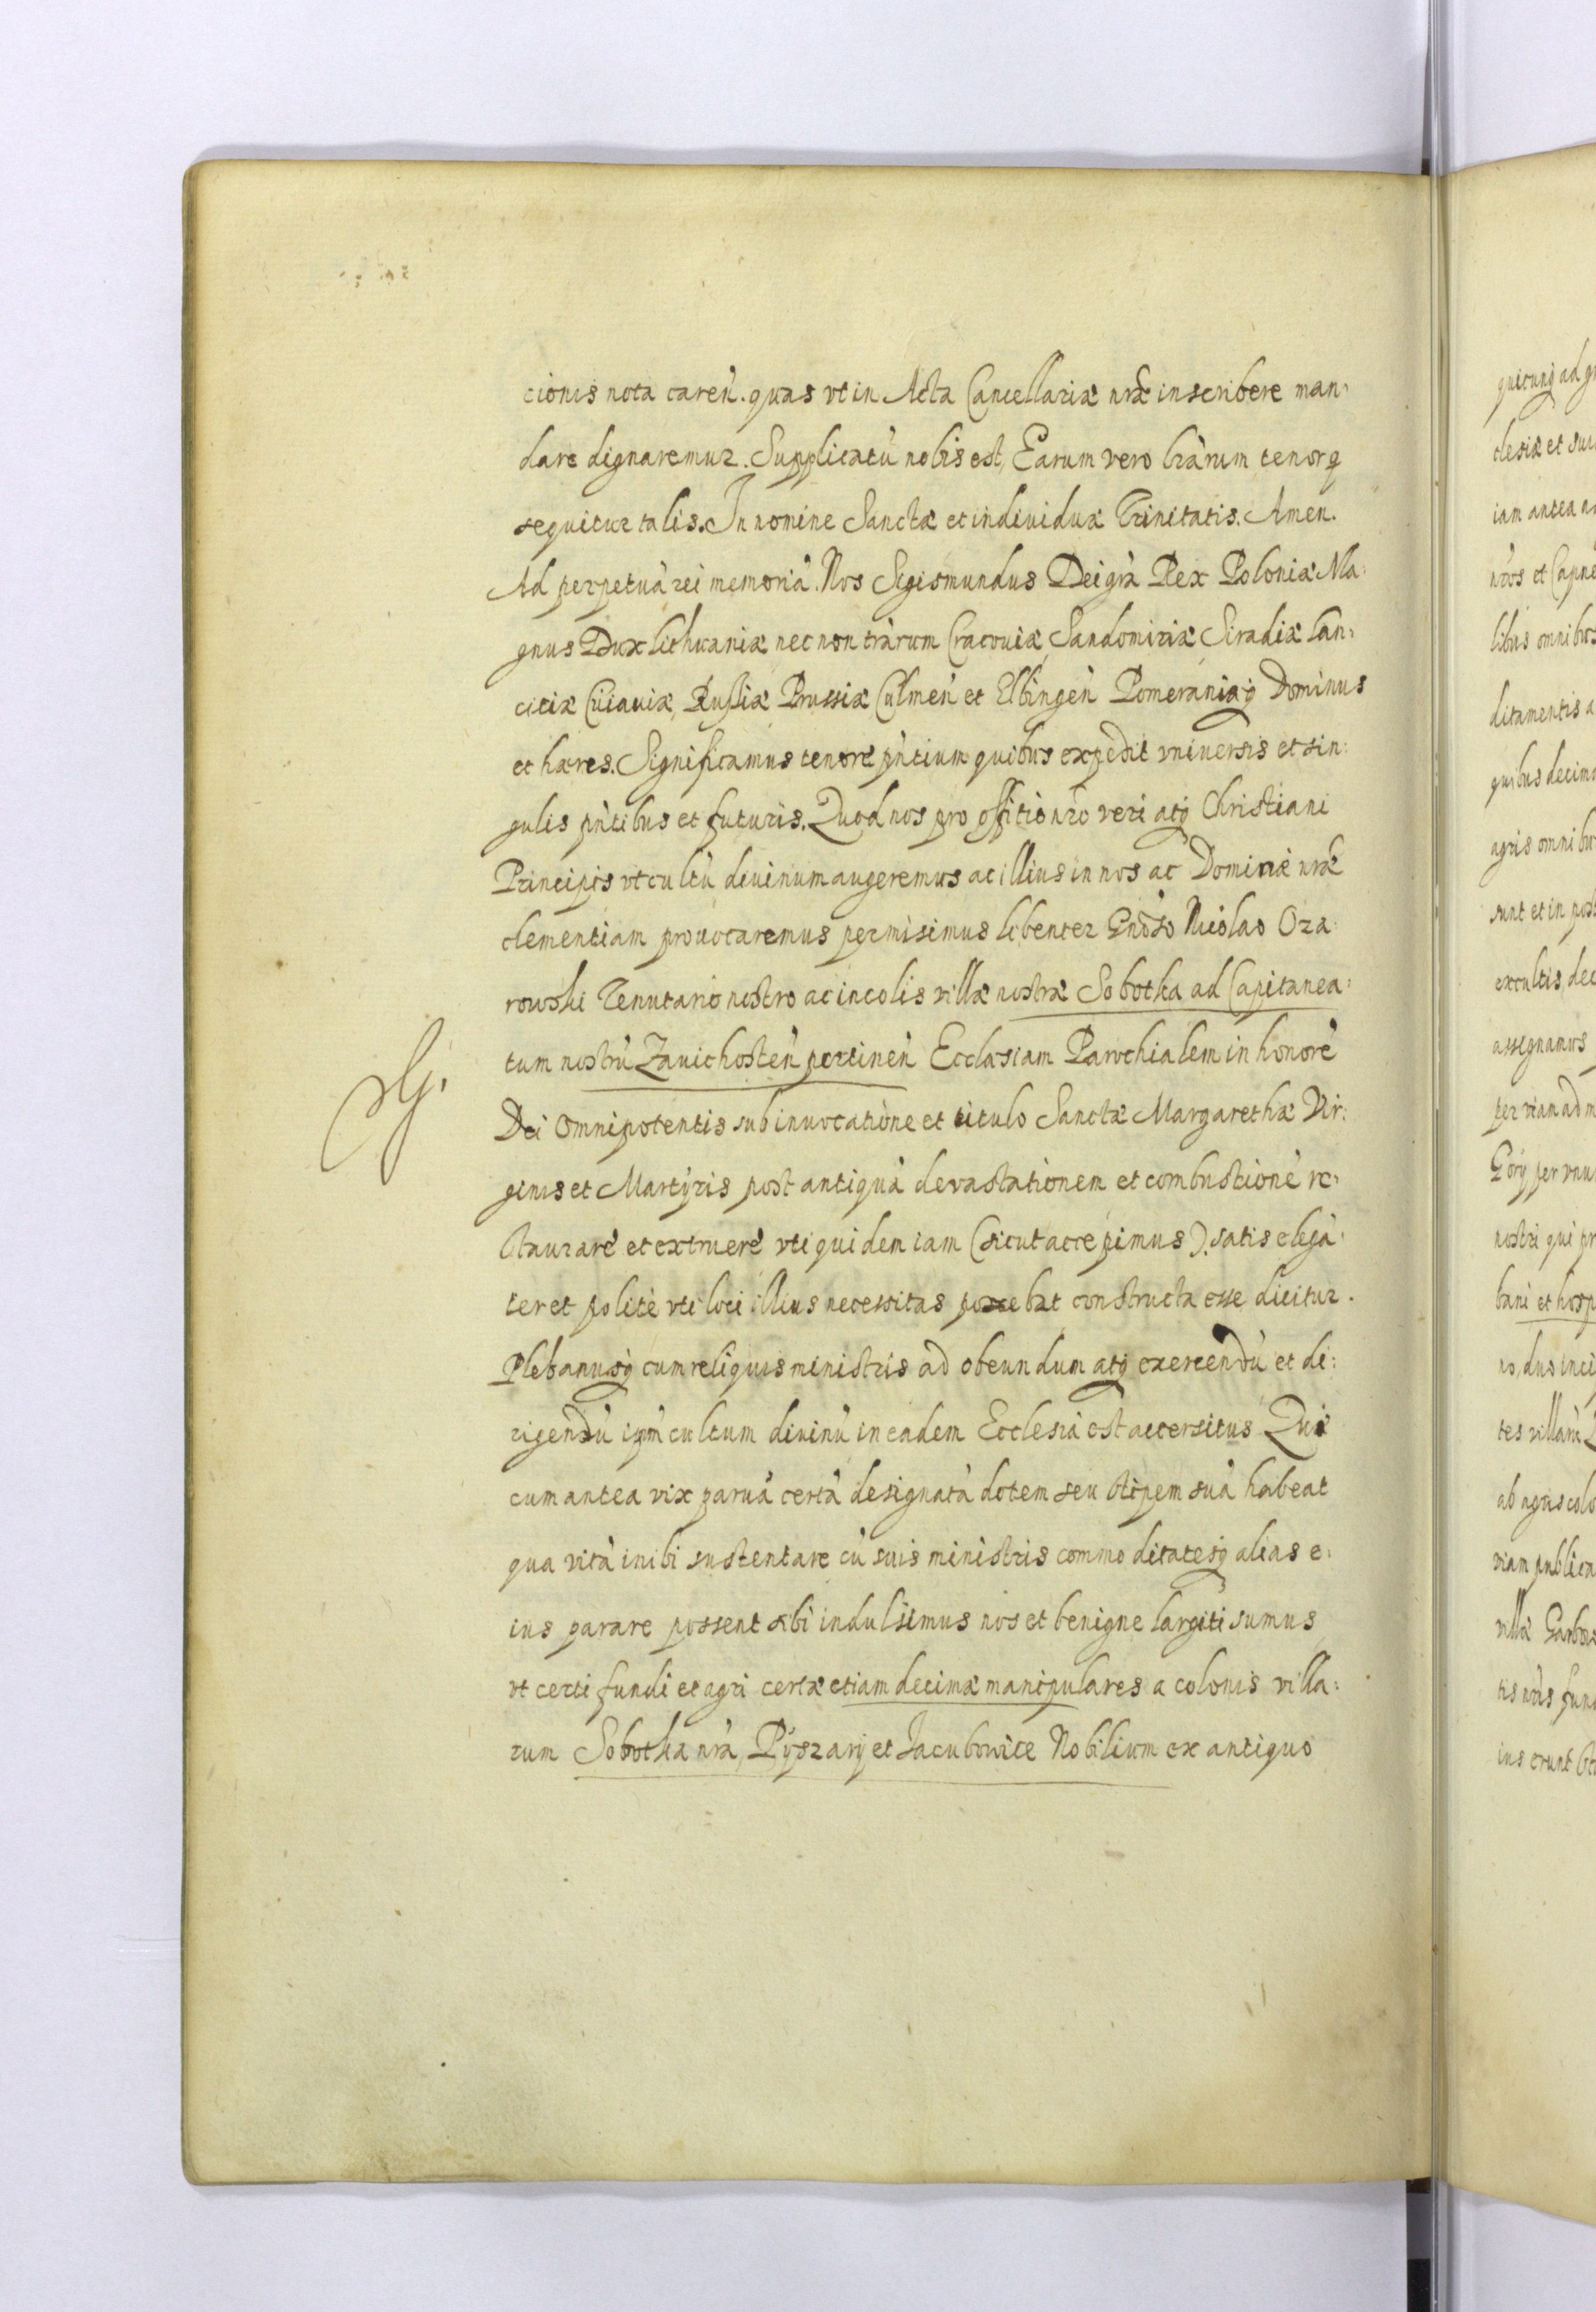 cionis nota careń. quas vt in Acta Cancellariæ nræ inscribere man:
dare dignaremur. Supplicatù nobis est, Earum vero lrarum tenor q
sequitur talis. In nomine Sanctæ et individuæ Trinitatis. Amen.
Ad perpetuà rei memorià. Nos Sigismundus Dei grà Rex Poloniæ Ma:
gnus Dux Lithuaniæ nec non trarum Cracoviæ Sandomiriæ Siradiæ Lan:
citiæ Cuiaviæ, Rusſiæ Prussiæ Culmeń et Elbingeń Pomeraniæq Dominus
et hæres. Significamus tenore pńtium quibus expedit vniversis et sin:
gulis pńtibus et futuris. Quod nos pro offitio nro veri atq Christiani
Principis vt cultù divinum augeremus ac illius in nos ac Dominia nrà
clementiam provocaremus permisimus libenter Gnoso Nicolao Oza:
rowski Tenutario nostro ac incolis villæ nostræ Sobotka ad Capitanea:
tum nostrù Zavichosteń pertineń Ecclæsiam Parochialem in honorè
SG.
Dei Omnipotentis sub invocatione et titulo Sanctæ Margarethæ Vir:
ginis et Martyris post antiquà devastationem et combustionè re:
staurarè et extruerè vti quidem iam (sicut accepimus). satis elegà:
ter et politè vti loci illius necessitas poscebat constructa esse dicitur.
Plebanusq cum reliquis ministris ad obeundum atq exercendù et di:
rigendù ipm cultum divinù in eadem Ecclesià est accersitus Qui
cum antea vix parvà certà designatà dotem seu stipem suà habeat
qua vità inibi sustentare cù suis ministris commoditatesq alias e:
ius parare possent sibi indulsimus nos et benigne largiti sumus
vt certi fundi et agri certæ etiam decimæ manipulares a colonis villa:
rum Sobotka nrà, Pyszary et Jacubowice Nobilium ex antiquo